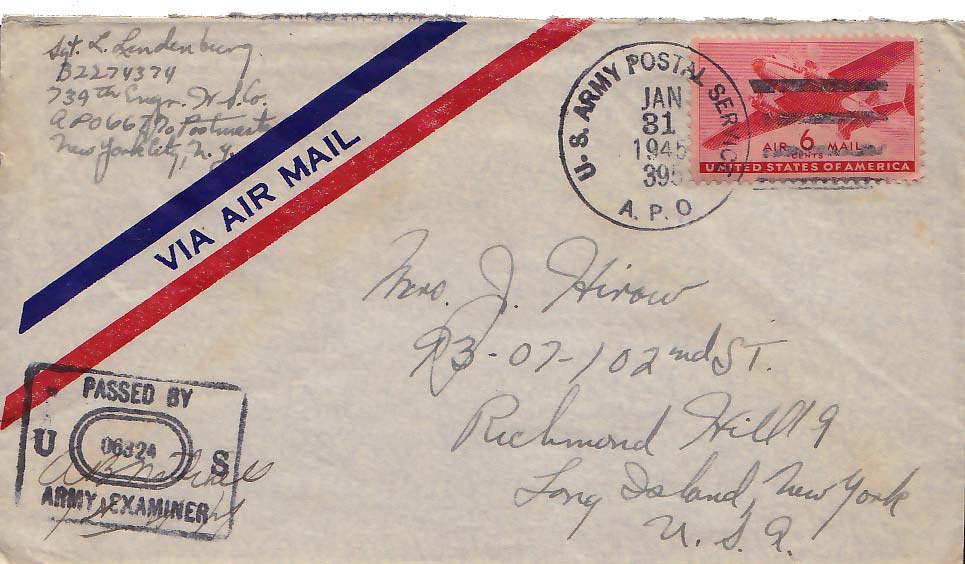 Sgt. L. Lindenburg
B2274374
739th Engr. H.S.Co.
APO 667 c/o Postmaster
New York City, N.Y.
VIA AIR MAIL
U.S. ARMY POSTAL SERVICE
JAN
31
1945
395
A.P.O
AIR 6 MAIL
CENTS
UNITED STATES OF AMERICA
Mrs. J. Hirow
93-07-102nd ST.
Richmond Hill 19
Long Island, New York
U.S.A.
PASSED BY
U 06324 S
ARMY EXAMINER